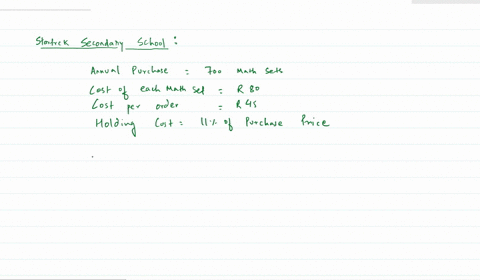 Startrek Secondary School :
Annual Purchase = 700 Math Sets
Cost of each Math Set = R 80
Cost per order = R 45
Holding Cost = 11% of Purchase Price